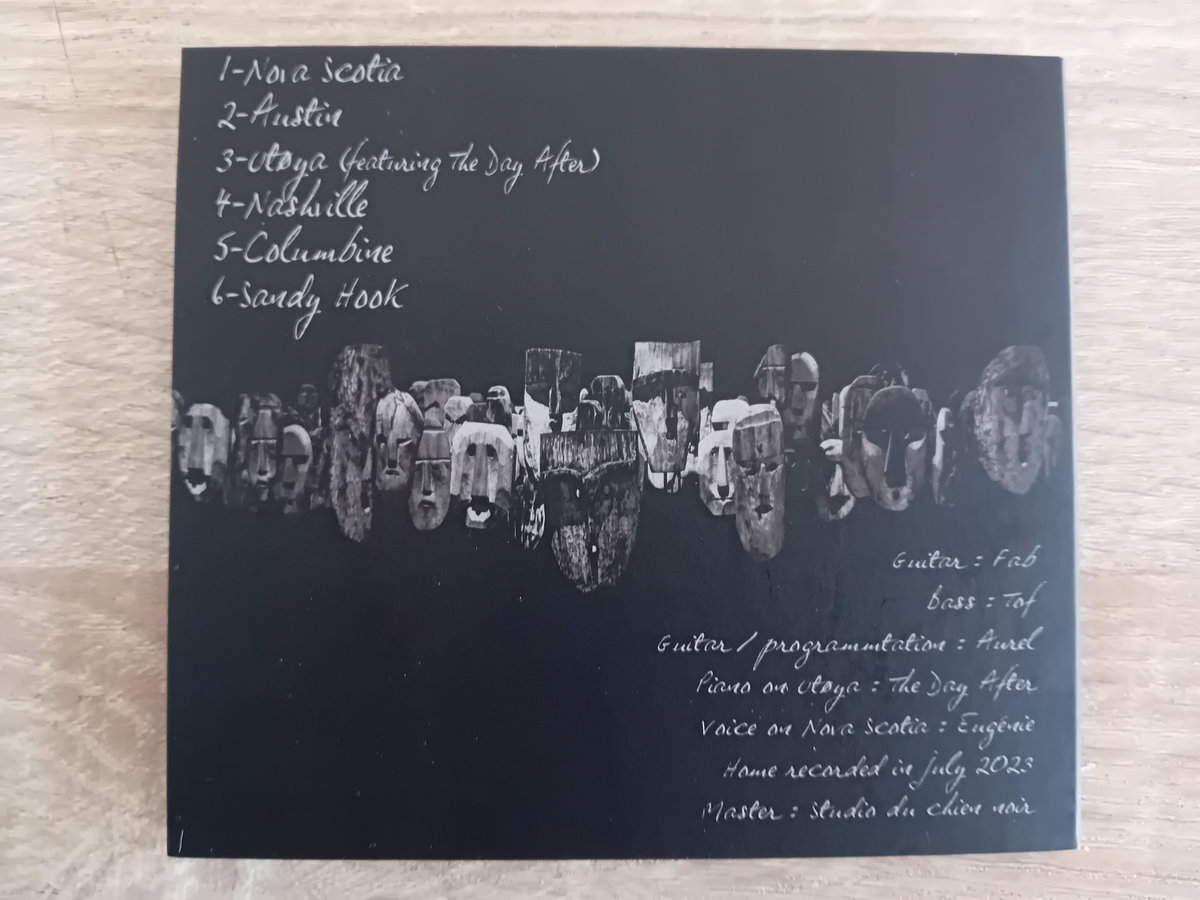 1-Nova Scotia
2-Austin
3-Utøya (featuring The Day After)
4-Nashville
5-Columbine
6-Sandy Hook
Guitar : Fab
Bass : Tof
Guitar / programmtation : Aurel
Piano on Utøya : The Day After
Voice on Nova Scotia : Eugénie
Home recorded in july 2023
Master : Studio du chien noir